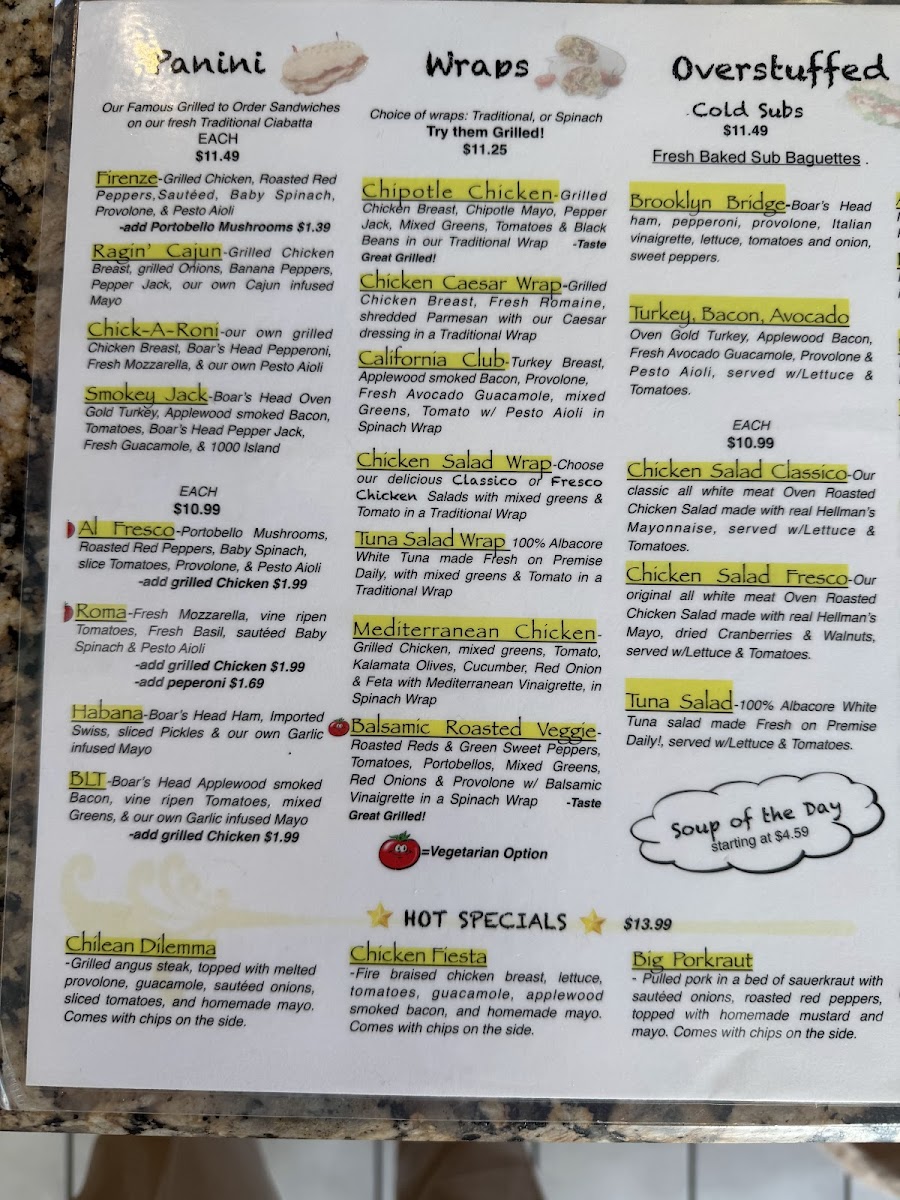 Panini
Our Famous Grilled to Order Sandwiches
on our fresh Traditional Ciabatta
EACH
$11.49
Firenze-Grilled Chicken, Roasted Red
Peppers,Sautéed, Baby Spinach,
Provolone, & Pesto Aioli
-add Portobello Mushrooms $1.39
Ragin' Cajun-Grilled Chicken
Breast, grilled Onions, Banana Peppers,
Pepper Jack, our own Cajun infused
Mayo
Chick-A-Roni-our own grilled
Chicken Breast, Boar's Head Pepperoni,
Fresh Mozzarella, & our own Pesto Aioli
Smokey Jack-Boar's Head Oven
Gold Turkey, Applewood smoked Bacon,
Tomatoes, Boar's Head Pepper Jack,
Fresh Guacamole, & 1000 Island
EACH
$10.99
Al Fresco-Portobello Mushrooms,
Roasted Red Peppers, Baby Spinach,
slice Tomatoes, Provolone, & Pesto Aioli
-add grilled Chicken $1.99
Roma-Fresh Mozzarella, vine ripen
Tomatoes, Fresh Basil, sautéed Baby
Spinach & Pesto Aioli
-add grilled Chicken $1.99
-add peperoni $1.69
Habana-Boar's Head Ham, Imported
Swiss, sliced Pickles & our own Garlic
infused Mayo
BLT-Boar's Head Applewood smoked
Bacon, vine ripen Tomatoes, mixed
Greens, & our own Garlic infused Mayo
-add grilled Chicken $1.99
Wraps
Choice of wraps: Traditional, or Spinach
Try them Grilled!
$11.25
Chipotle Chicken-Grilled
Chicken Breast, Chipotle Mayo, Pepper
Jack, Mixed Greens, Tomatoes & Black
Beans in our Traditional Wrap -Taste
Great Grilled!
Chicken Caesar Wrap-Grilled
Chicken Breast, Fresh Romaine,
shredded Parmesan with our Caesar
dressing in a Traditional Wrap
California Club-Turkey Breast,
Applewood smoked Bacon, Provolone,
Fresh Avocado Guacamole, mixed
Greens, Tomato w/ Pesto Aioli in
Spinach Wrap
Chicken Salad Wrap-Choose
our delicious Classico or Fresco
Chicken Salads with mixed greens &
Tomato in a Traditional Wrap
Tuna Salad Wrap 100% Albacore
White Tuna made Fresh on Premise
Daily, with mixed greens & Tomato in a
Traditional Wrap
Mediterranean Chicken-
Grilled Chicken, mixed greens, Tomato,
Kalamata Olives, Cucumber, Red Onion
& Feta with Mediterranean Vinaigrette, in
Spinach Wrap
Balsamic Roasted Veggie-
Roasted Reds & Green Sweet Peppers,
Tomatoes, Portobellos, Mixed Greens,
Red Onions & Provolone w/ Balsamic
Vinaigrette in a Spinach Wrap -Taste
Great Grilled!
=Vegetarian Option
Overstuffed
Cold Subs
$11.49
Fresh Baked Sub Baguettes .
Brooklyn Bridge-Boar's Head
ham, pepperoni, provolone, Italian
vinaigrette, lettuce, tomatoes and onion,
sweet peppers.
Turkey, Bacon, Avocado
Oven Gold Turkey, Applewood Bacon,
Fresh Avocado Guacamole, Provolone &
Pesto Aioli, served w/Lettuce &
Tomatoes.
EACH
$10.99
Chicken Salad Classico-Our
classic all white meat Oven Roasted
Chicken Salad made with real Hellman's
Mayonnaise, served w/Lettuce &
Tomatoes.
Chicken Salad Fresco-Our
original all white meat Oven Roasted
Chicken Salad made with real Hellman's
Mayo, dried Cranberries & Walnuts,
served w/Lettuce & Tomatoes.
Tuna Salad-100% Albacore White
Tuna salad made Fresh on Premise
Daily!, served w/Lettuce & Tomatoes.
Soup of the Day
starting at $4.59
HOT SPECIALS $13.99
Chilean Dilemma
-Grilled angus steak, topped with melted
provolone, guacamole, sautéed onions,
sliced tomatoes, and homemade mayo.
Comes with chips on the side.
Chicken Fiesta
-Fire braised chicken breast, lettuce,
tomatoes, guacamole, applewood
smoked bacon, and homemade mayo.
Comes with chips on the side.
Big Porkraut
- Pulled pork in a bed of sauerkraut with
sautéed onions, roasted red peppers,
topped with homemade mustard and
mayo. Comes with chips on the side.